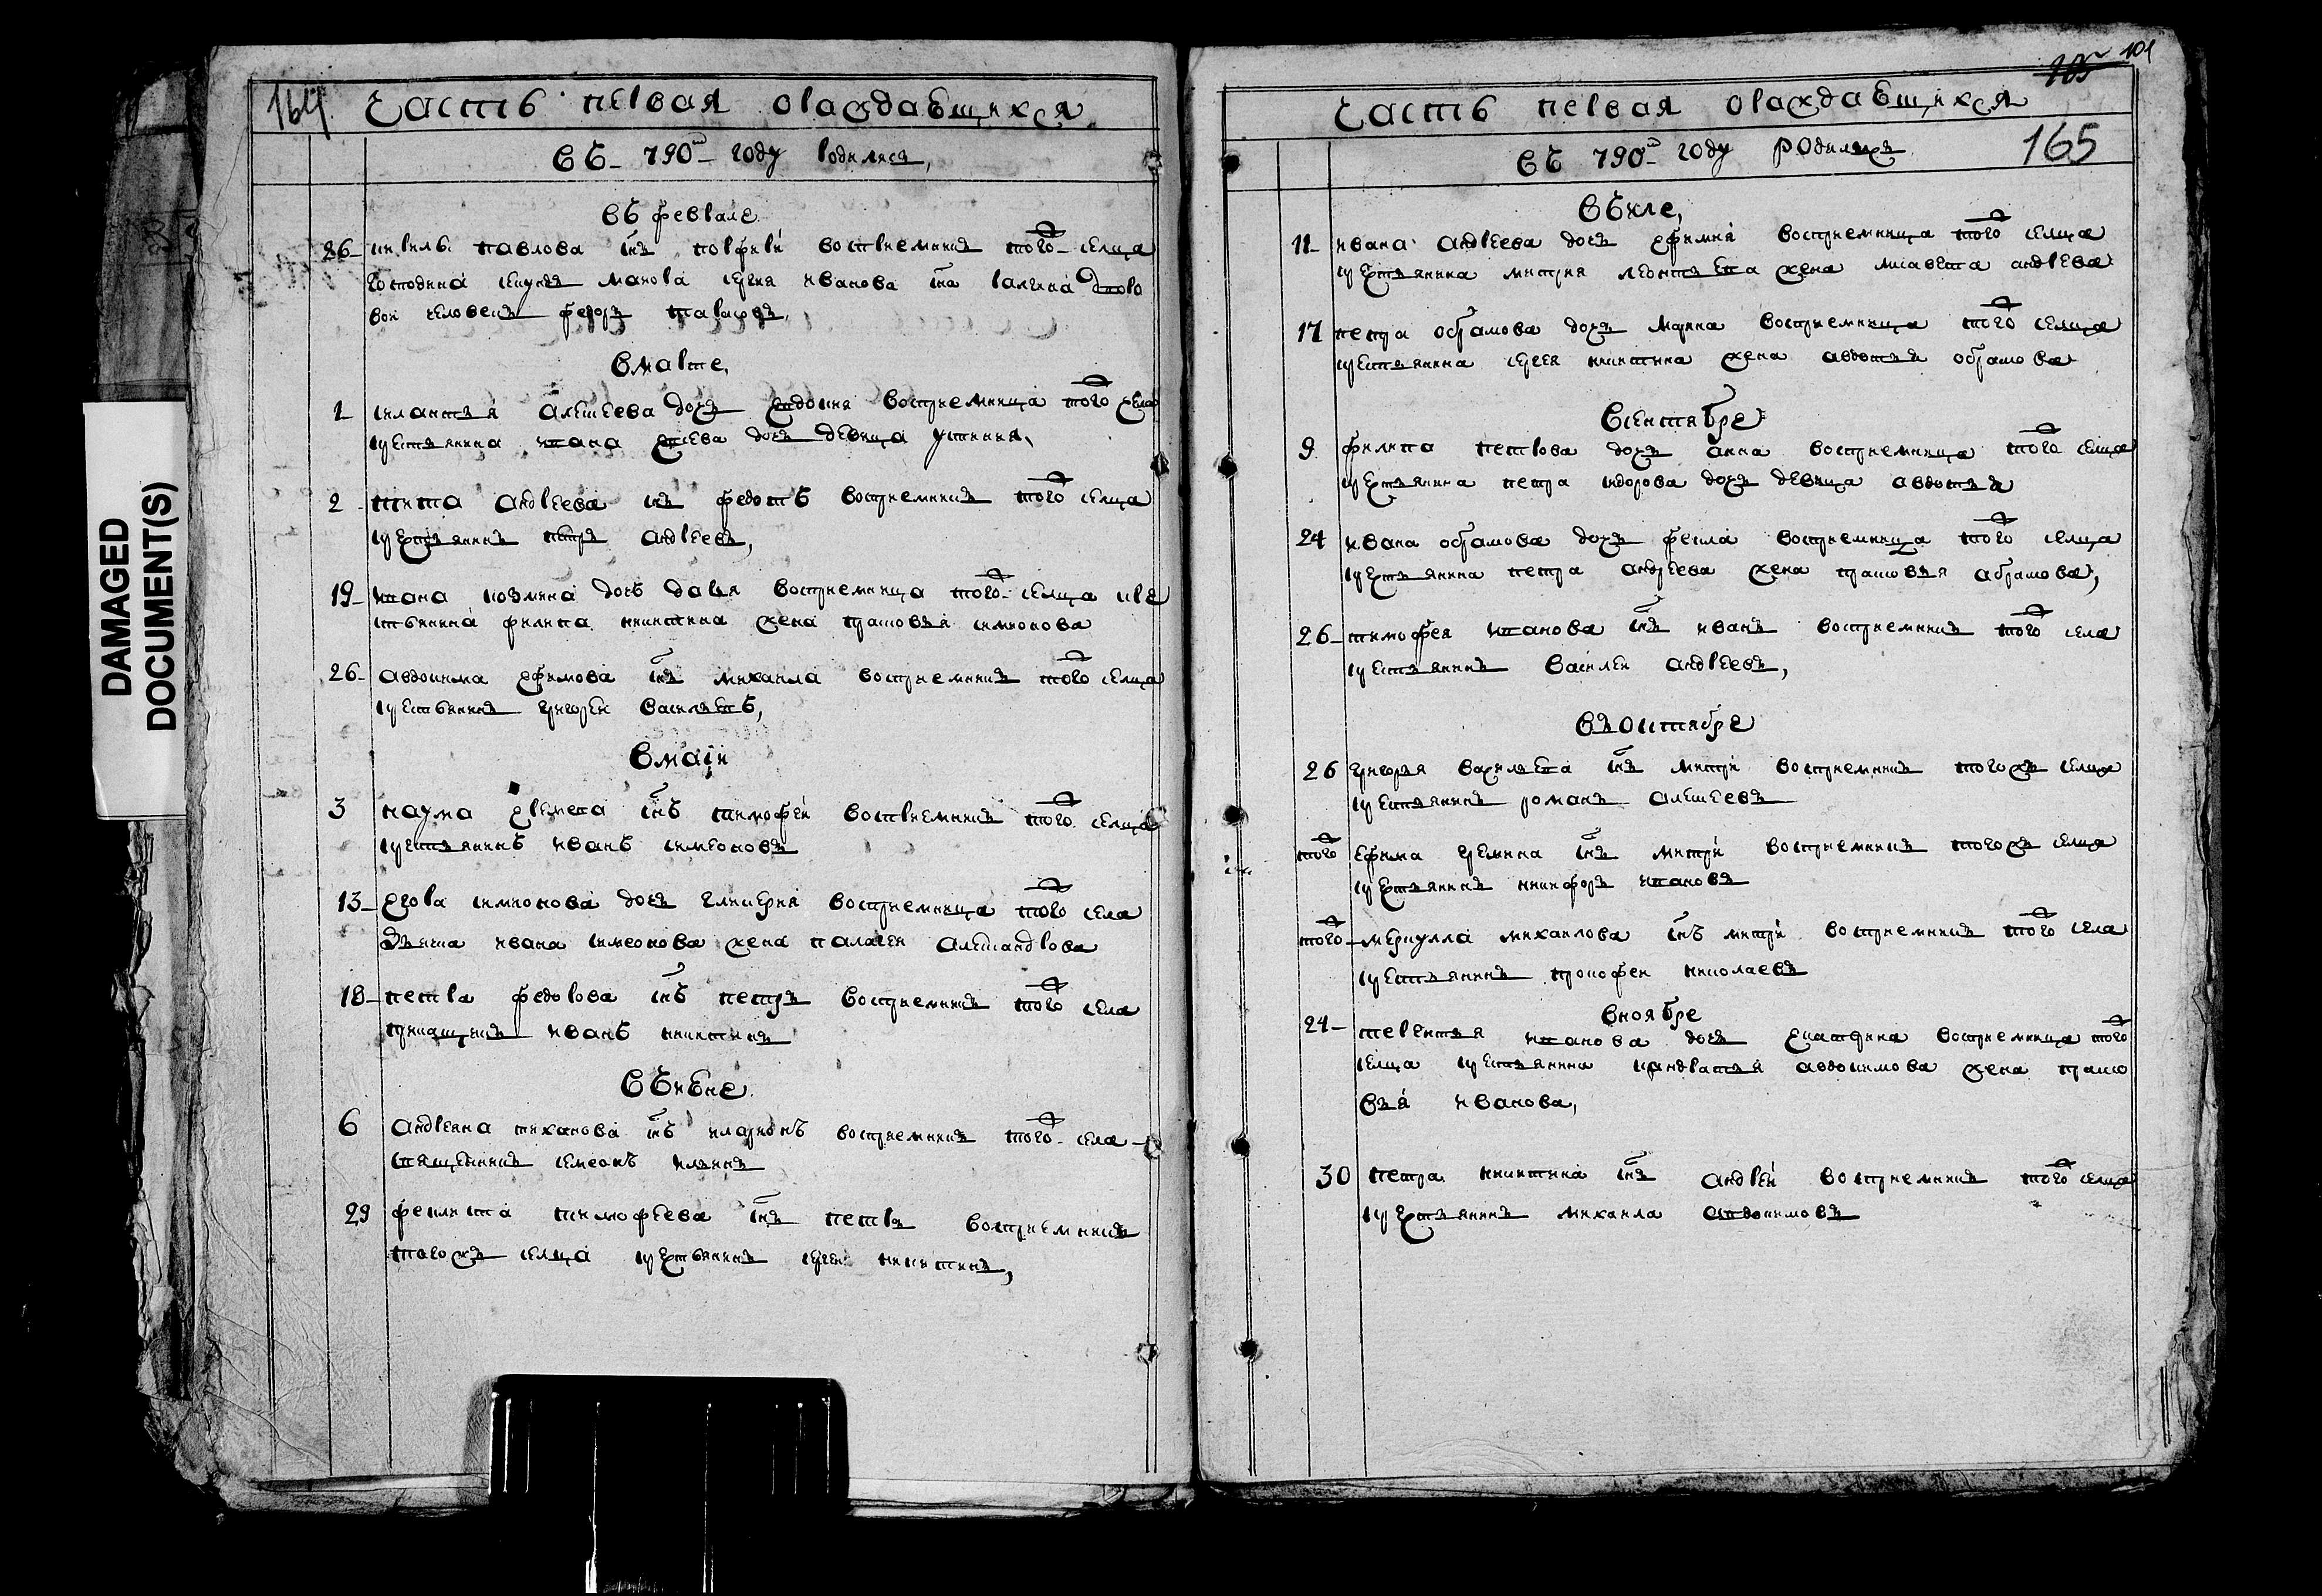 DAMAGED
DOCUMENT(S)
164
часть первая ораждавшихся
въ 790м году родился,
въ феврале
26 павлова снъ порфирй восприемникъ того селца
господина майора сергея иванова сна дворо
вои человекъ федоръ
вмарте,
1 алексеева дочь евдокия восприемница того села
крестьянина евсева дочь девица устиния,
2 тита андреева снъ федотъ восприемникъ того селца
крестьянинъ петръ андреевъ,
19 козмина дочь дарья восприемница того селца кре
стьянина филипа никитина жена прасковья симионова
26 авдокима ефимова снъ михаила восприемникъ того селца
крестьянинъ григореи василевъ,
вмаiи
3 наума еремеева снъ тимофеи восприемникъ того селца
крестьянинъ иванъ симеоновъ
13 егора симионова дочь гликерия восприемница того села
дьячка ивана симеонова жена палагеи александрова
18 петра федорова снъ петръ восприемникъ того села
прикащикъ иванъ никитинъ
въиюне
6 андреяна тиханова снъ иларионъ восприемникъ того села
священникъ симеонъ ильинъ
29 фелипа тимофеева снъ петръ восприемникъ
тогожъ селца крестьянинъ сергеи никитинъ,
105 101
часть первая ораждавшихся
165
въ 790м году родилися
въиле,
11 ивана андреева дочь ефимия восприемница того селца
крестьянина митрия леонтьева жена лисавета андреева
17 петра обрамова дочь марина восприемница того селца
крестьянина сергея никитина жена авдотья обрамова
всентябре
9 филипа петрова дочь анна восприемница того селца
крестьянина петра сидорова дочь девица авдотья
24 ивана обрамова дочь фекла восприемница того селца
крестьянина петра андреева жена прасковья абрамова,
26 тимофея степанова снъ иванъ восприемникъ того села
крестьянинъ василеи андреевъ,
въоктябре
26 григорья васильева снъ митри восприемникъ тогожъ селца
крестьянинъ романъ алексеевъ
того ефима еремина снъ митри восприемникъ тогожъ селца
крестьянинъ никифоръ степановъ
того меркулла михаилова снъ митри восприемникъ того села
крестьянинъ прокофеи николаевъ
вноябре
24 терентья степанова дочь екатерина восприемница того
селца крестьянина кандратья авдокимова жена праско
вья иванова,
30 петра никитина снъ андреи восприемникъ того селца
крестьянинъ михаила авдокимовъ